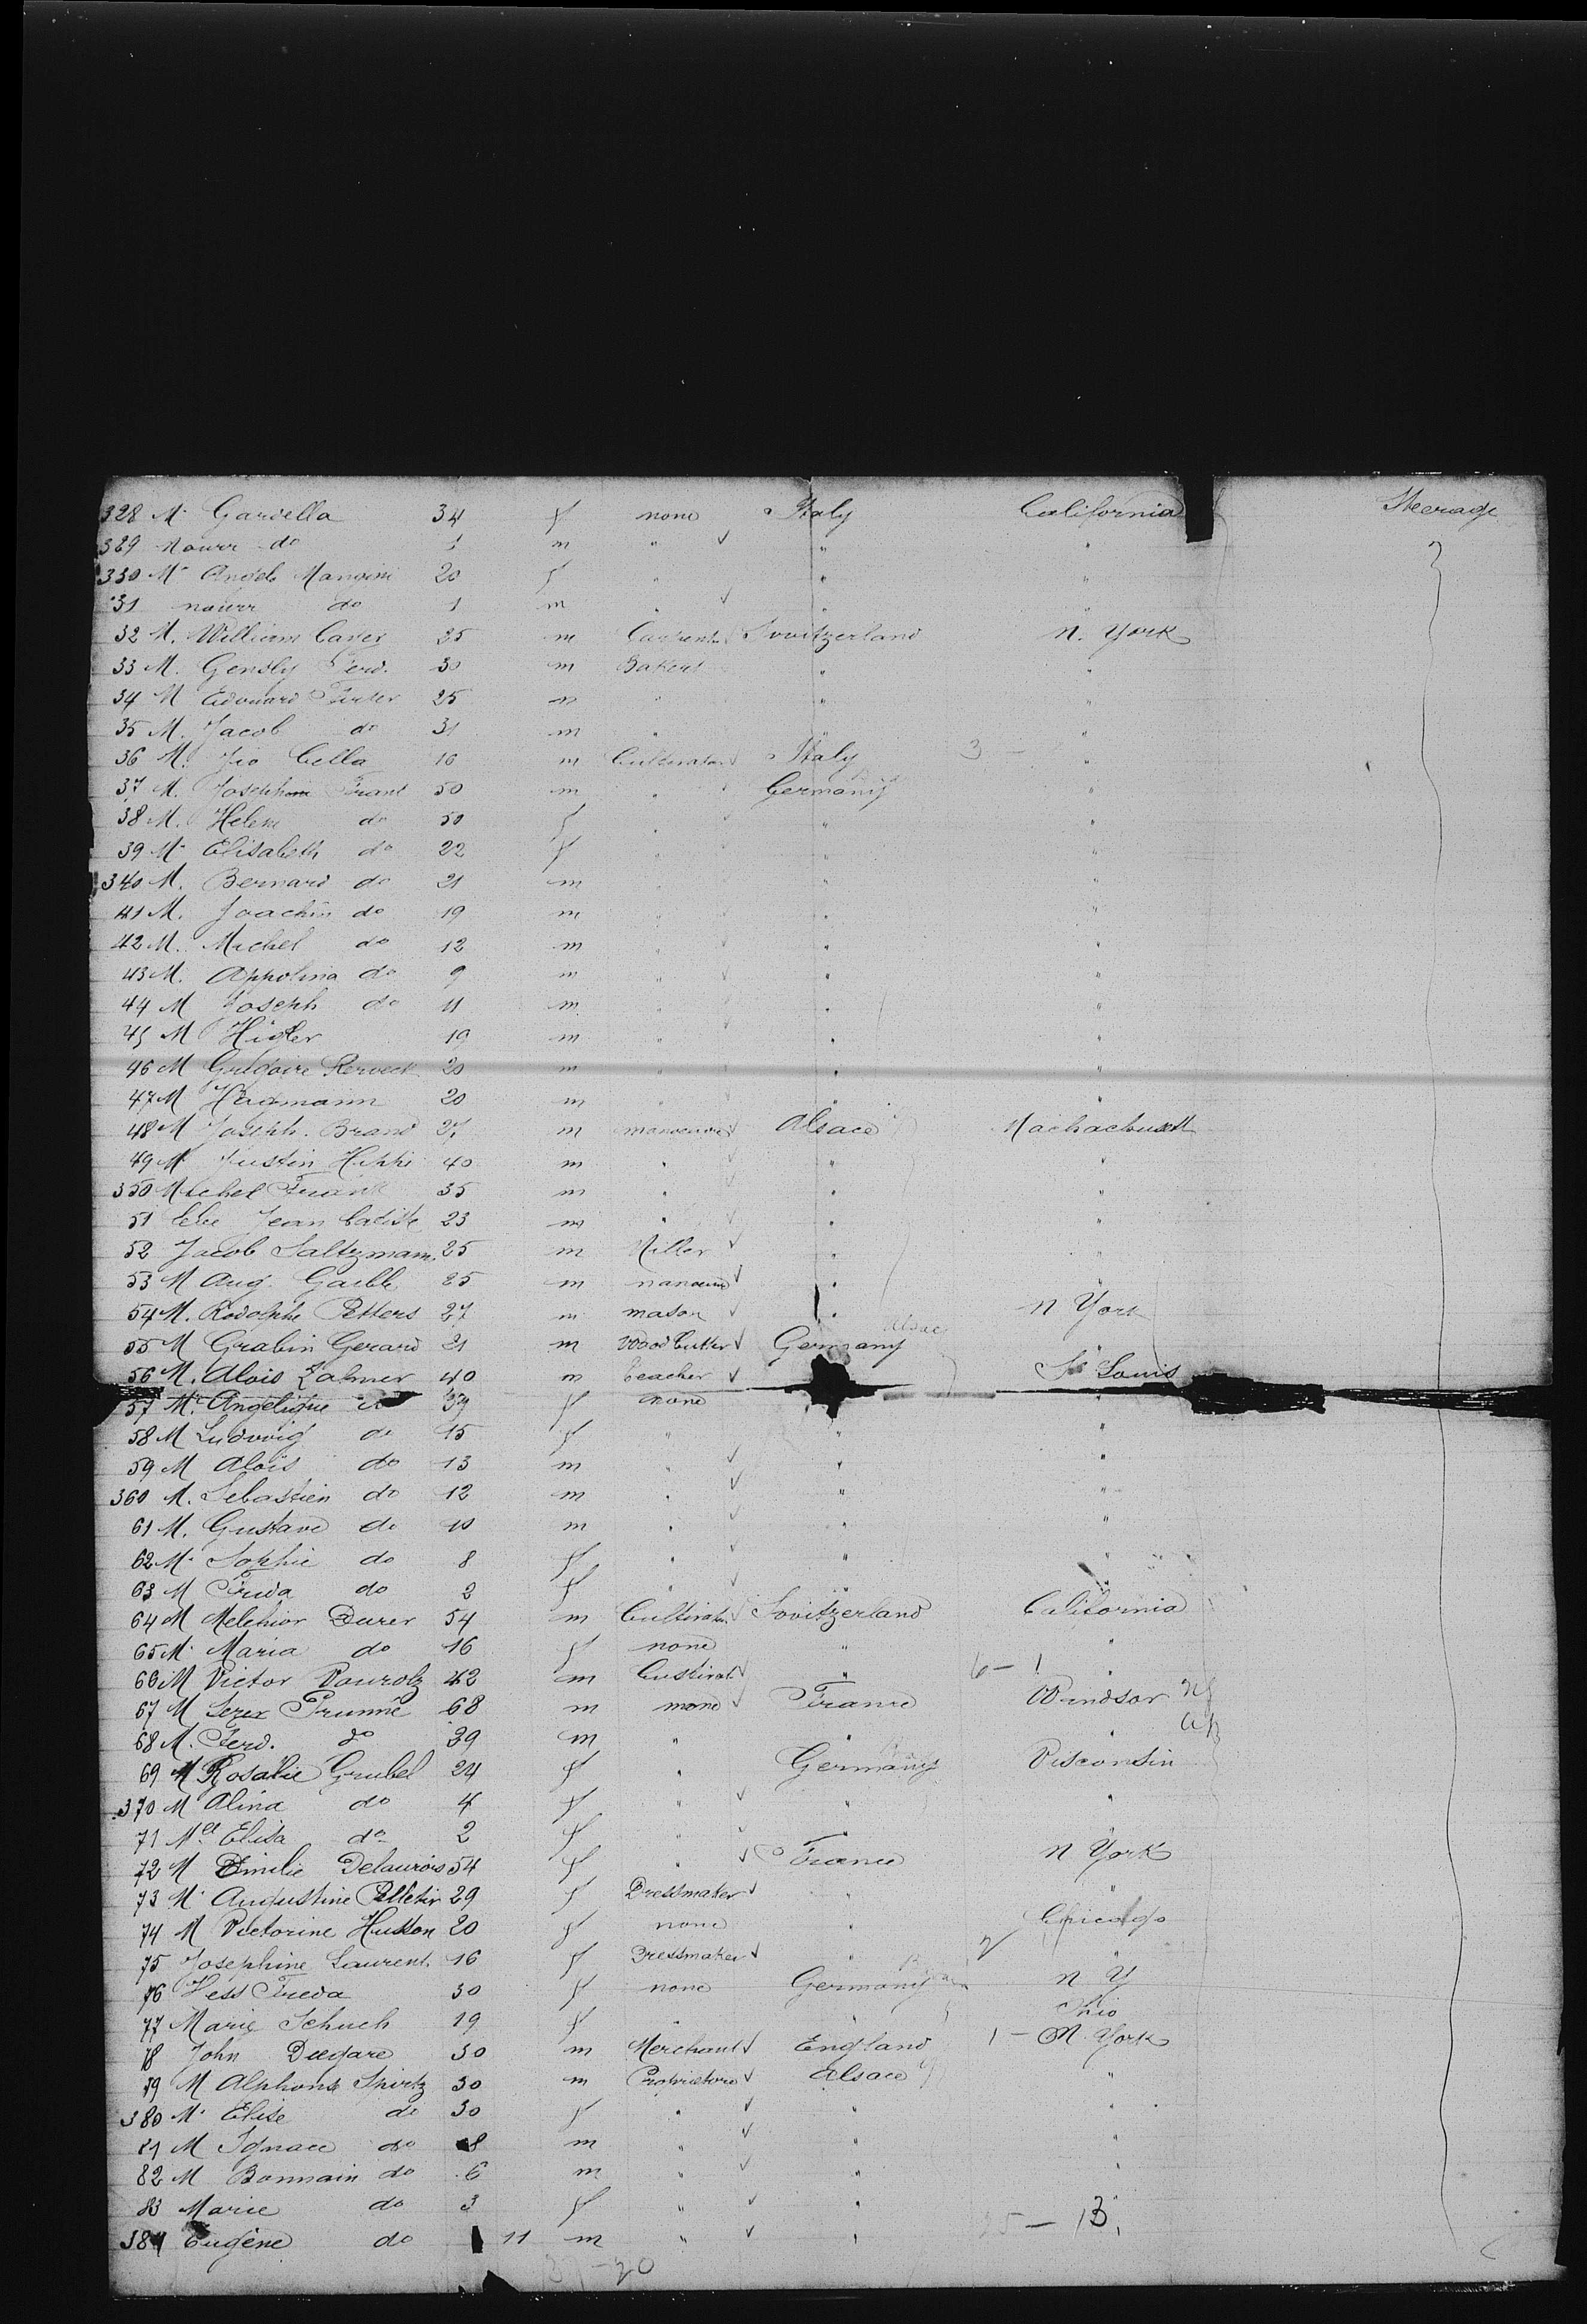 328 M. Gardella 34 f none Italy California Steerage
329 Nourr do 1 m " "  "
330 Me Angel Mangini 20 f " " "
31 nourr do 1 m " " "
32 M. William 25 m Switzerland N. York
33 M. Gensly Ferd. 30 m Bakers " "
34 M Edouard Furter 25 m " " "
35 M. Jacob do 31 m " " "
36 M. Jio Cella 16 m Cultivator Italy 3 - "
37 M. Joseph Frant 50 m " Germany "
38 M. Helene do 50 f " " "
39 Me Elisabeth do 22 f " " "
340 M. Bernard do 21 m " " "
41 M. Joachin do 19 m " " "
42 M. Michel do 12 m " " "
43 M. Appolina do 9 m " " "
44 M Joseph do 11 m " " "
45 M Higler 19 m " " "
46 M Grégoire 20 m " " "
47 M Hagmann 20 m " " "
48 M Joseph. Brand 27 m Alsace Machachusett
49 M Justin Hippi 40 m " " "
350 Michel Frank 35 m " " "
51 Jean 23 m " " "
52 Jacob Saltzmann 25 m Miller " "
53 M Aug. 25 m " "
54 M. Rodolphe Petters 27 m mason " N York
55 M Grabin Gerard 21 m Wood Cutter Germany Alsace
56 M. Alois Zahner 40 m teacher St Louis
57 Me Angelique do 39 f none "
58 M Ludwig do 15 f " " "
59 M Aloïs do 13 m " " "
360 M. Sebastien do 12 m " " "
61 M. Gustave do 10 m " " "
62 M. Sophie do 8 f " " "
63 M Frida do 2 f " " "
64 M Melchior Durer 54 m Cultivator Switzerland California
65 M. Maria do 16 f none " "
66 M Victor 42 m Cultivat. " 6 - 1 "
67 M Prunné 68 m none France Windsor
68 M. Ferd. do 39 m " " "
69 M Rosalie Grubel 24 f " Germany Visconsin
370 M Alina do 4 f " " "
71 Melle Elisa do 2 f " "
72 M Emilie Delaurois 54 f " France N York
73 M. Augustine Pelletir 29 f Dressmaker " "
74 M Victorine Husson 20 f none " Chicago
75 Josephine Laurent 16 f Dressmaker " 2 "
76 Hess Freda 30 f none Germany N Y
77 Marie Schuch 19 f " " Ohio
78 John Deegare 30 m Merchant England 1 - N. York
79 M Alphonse Spirtz 30 m Proprietore Alsace "
380 Me Elise do 30 f " " "
81 M Ignace do 8 m " " "
82 M do 6 m " " "
83 Marie do 3 f " "
384 Eugène do 11 m " " - 13.
- 20